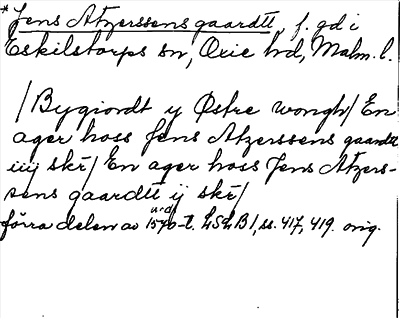 * Jens Atzerssens gaardtt, f. gd i
Eskilstorps sn, Oxie hd, Malm. l.
/Bygiordt y Østre wongh/ En
ager hoss Jens Atzerssens gaardtt
iiij skr̄/ En ager hoss Jens Atzers-
sens gaardtt ij skr̄/
förra delen av 1570-t. LSLB1, ss. 417, 419. orig.